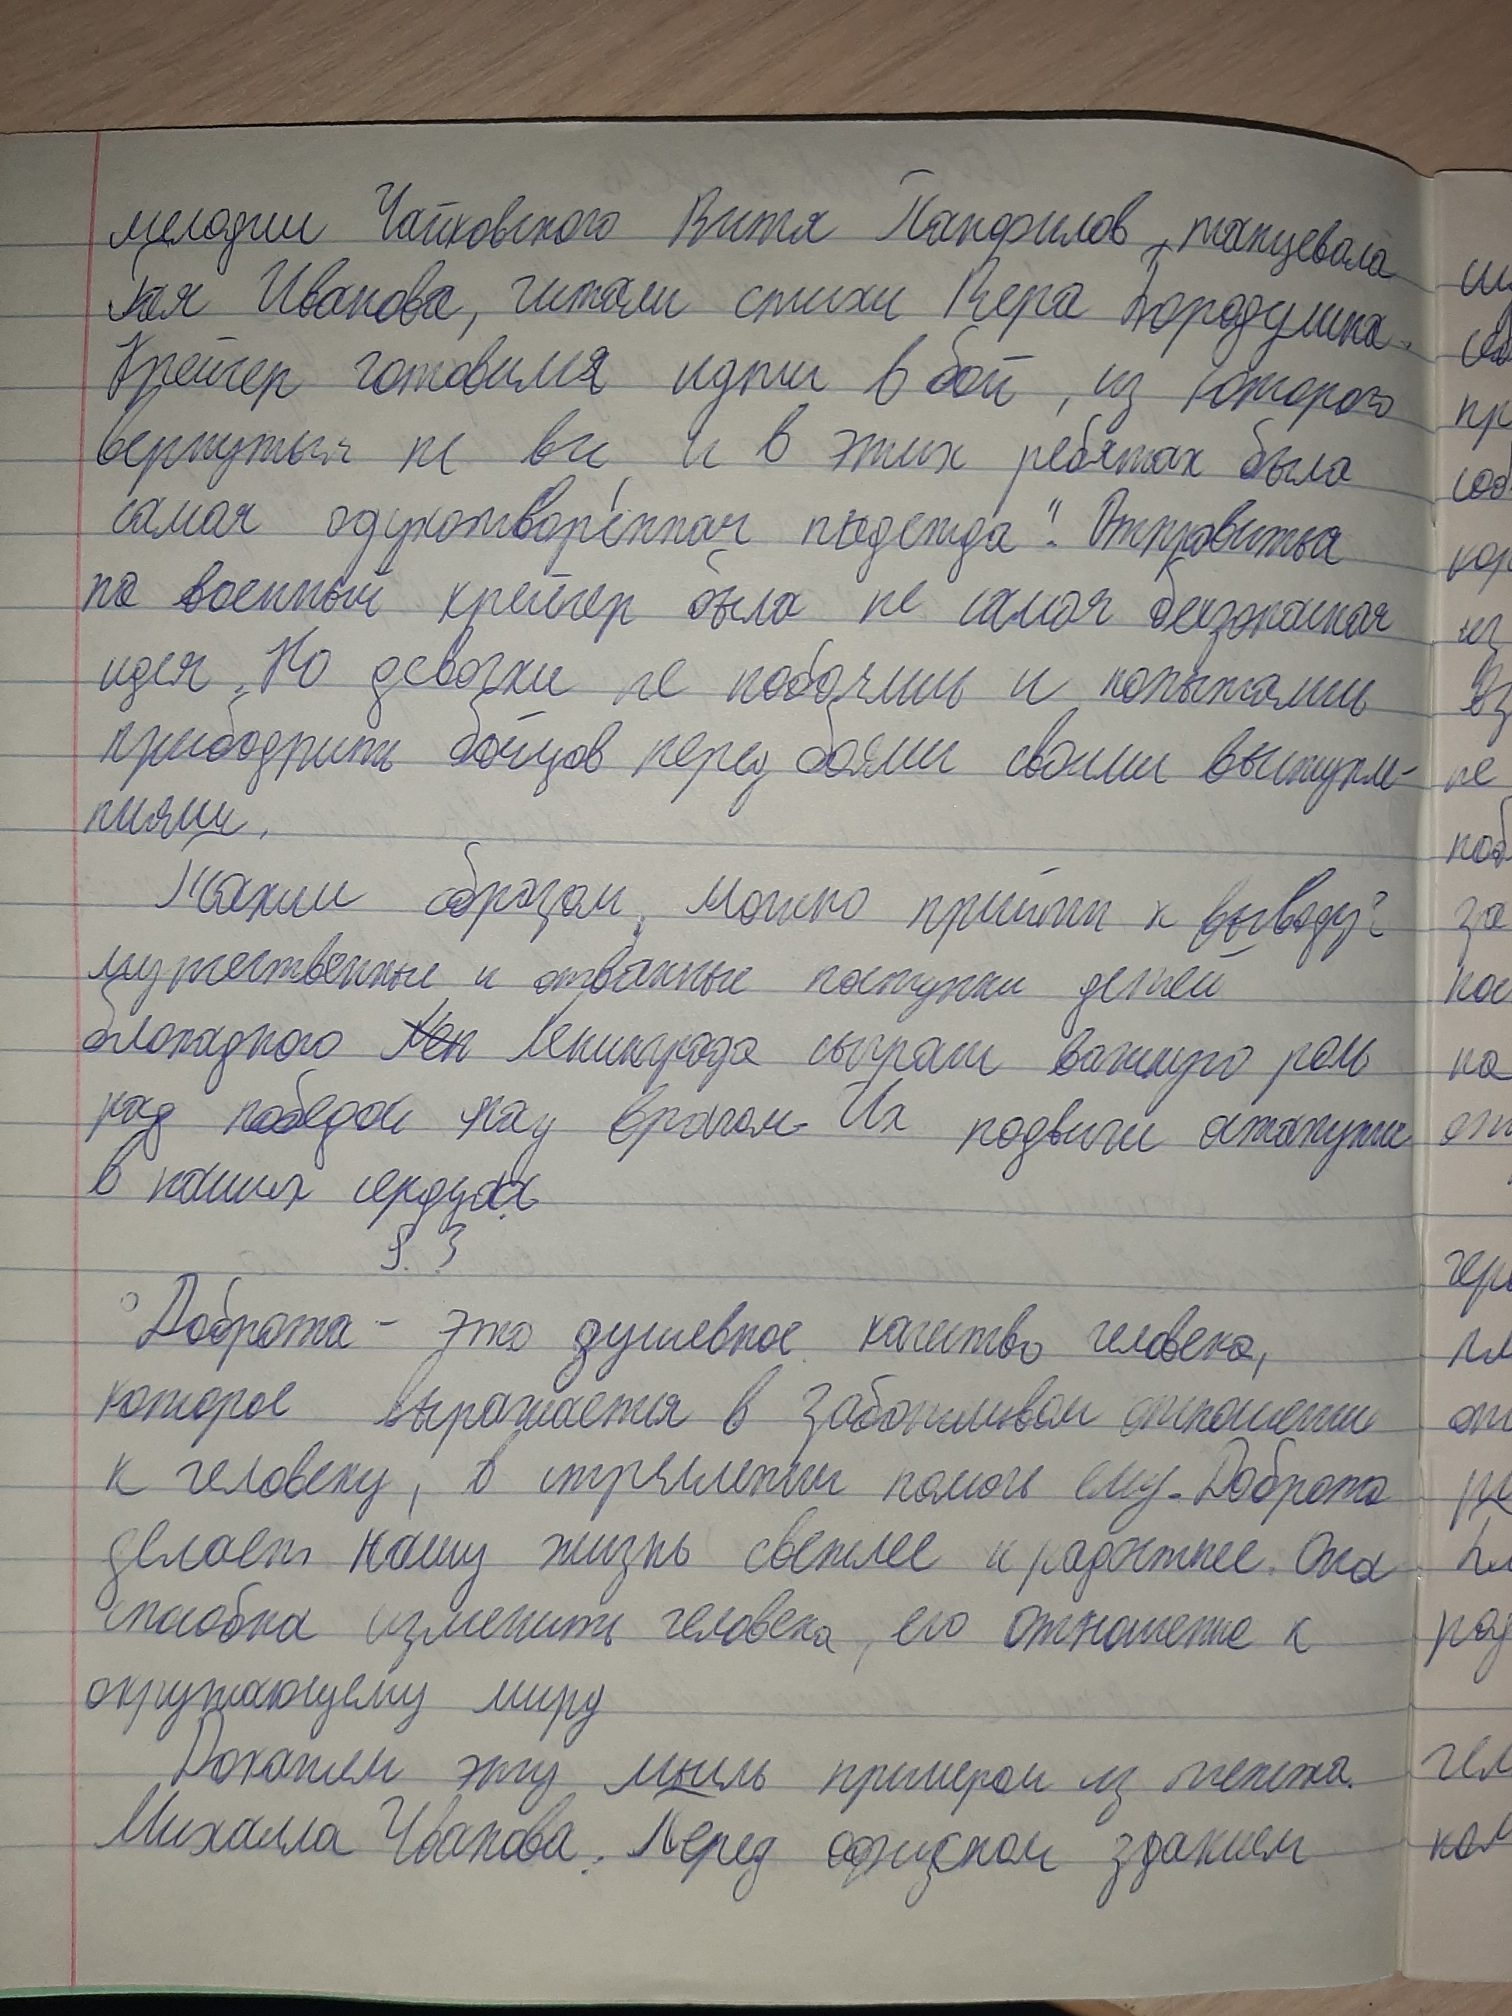 мелодии Чайковского Витя Панфилов, танцевала
Тая Иванова, читали стихи Вера Бородулина.
Крейсер готовился идти в бой, из которого
вернуться не все, и в этих ребятах была
самая одухотворённая надежда". Отправиться
на военный крейсер была не самая безопасная
идея. Но девочки не побоялись и попытались
приободрить бойцов перед боями своими выступле-
ниями.
Таким образом, можно прийти к выводу:
мужественные и отважные поступки детей
блокадного Ленинграда сыграли важную роль
над победой над врагом. Их подвиги
в наших сердцах
§. 3
Доброта - это душевное качество человека,
которое выражается в заботливом отношении
к человеку, в стремлении помочь ему. Доброта
делает нашу жизнь светлее и радостнее. Она
способна изменить человека, его отношение к
окружающему миру
Докажем эту мысль примером из текста
Михаила Иванова. Перед офисном зданием